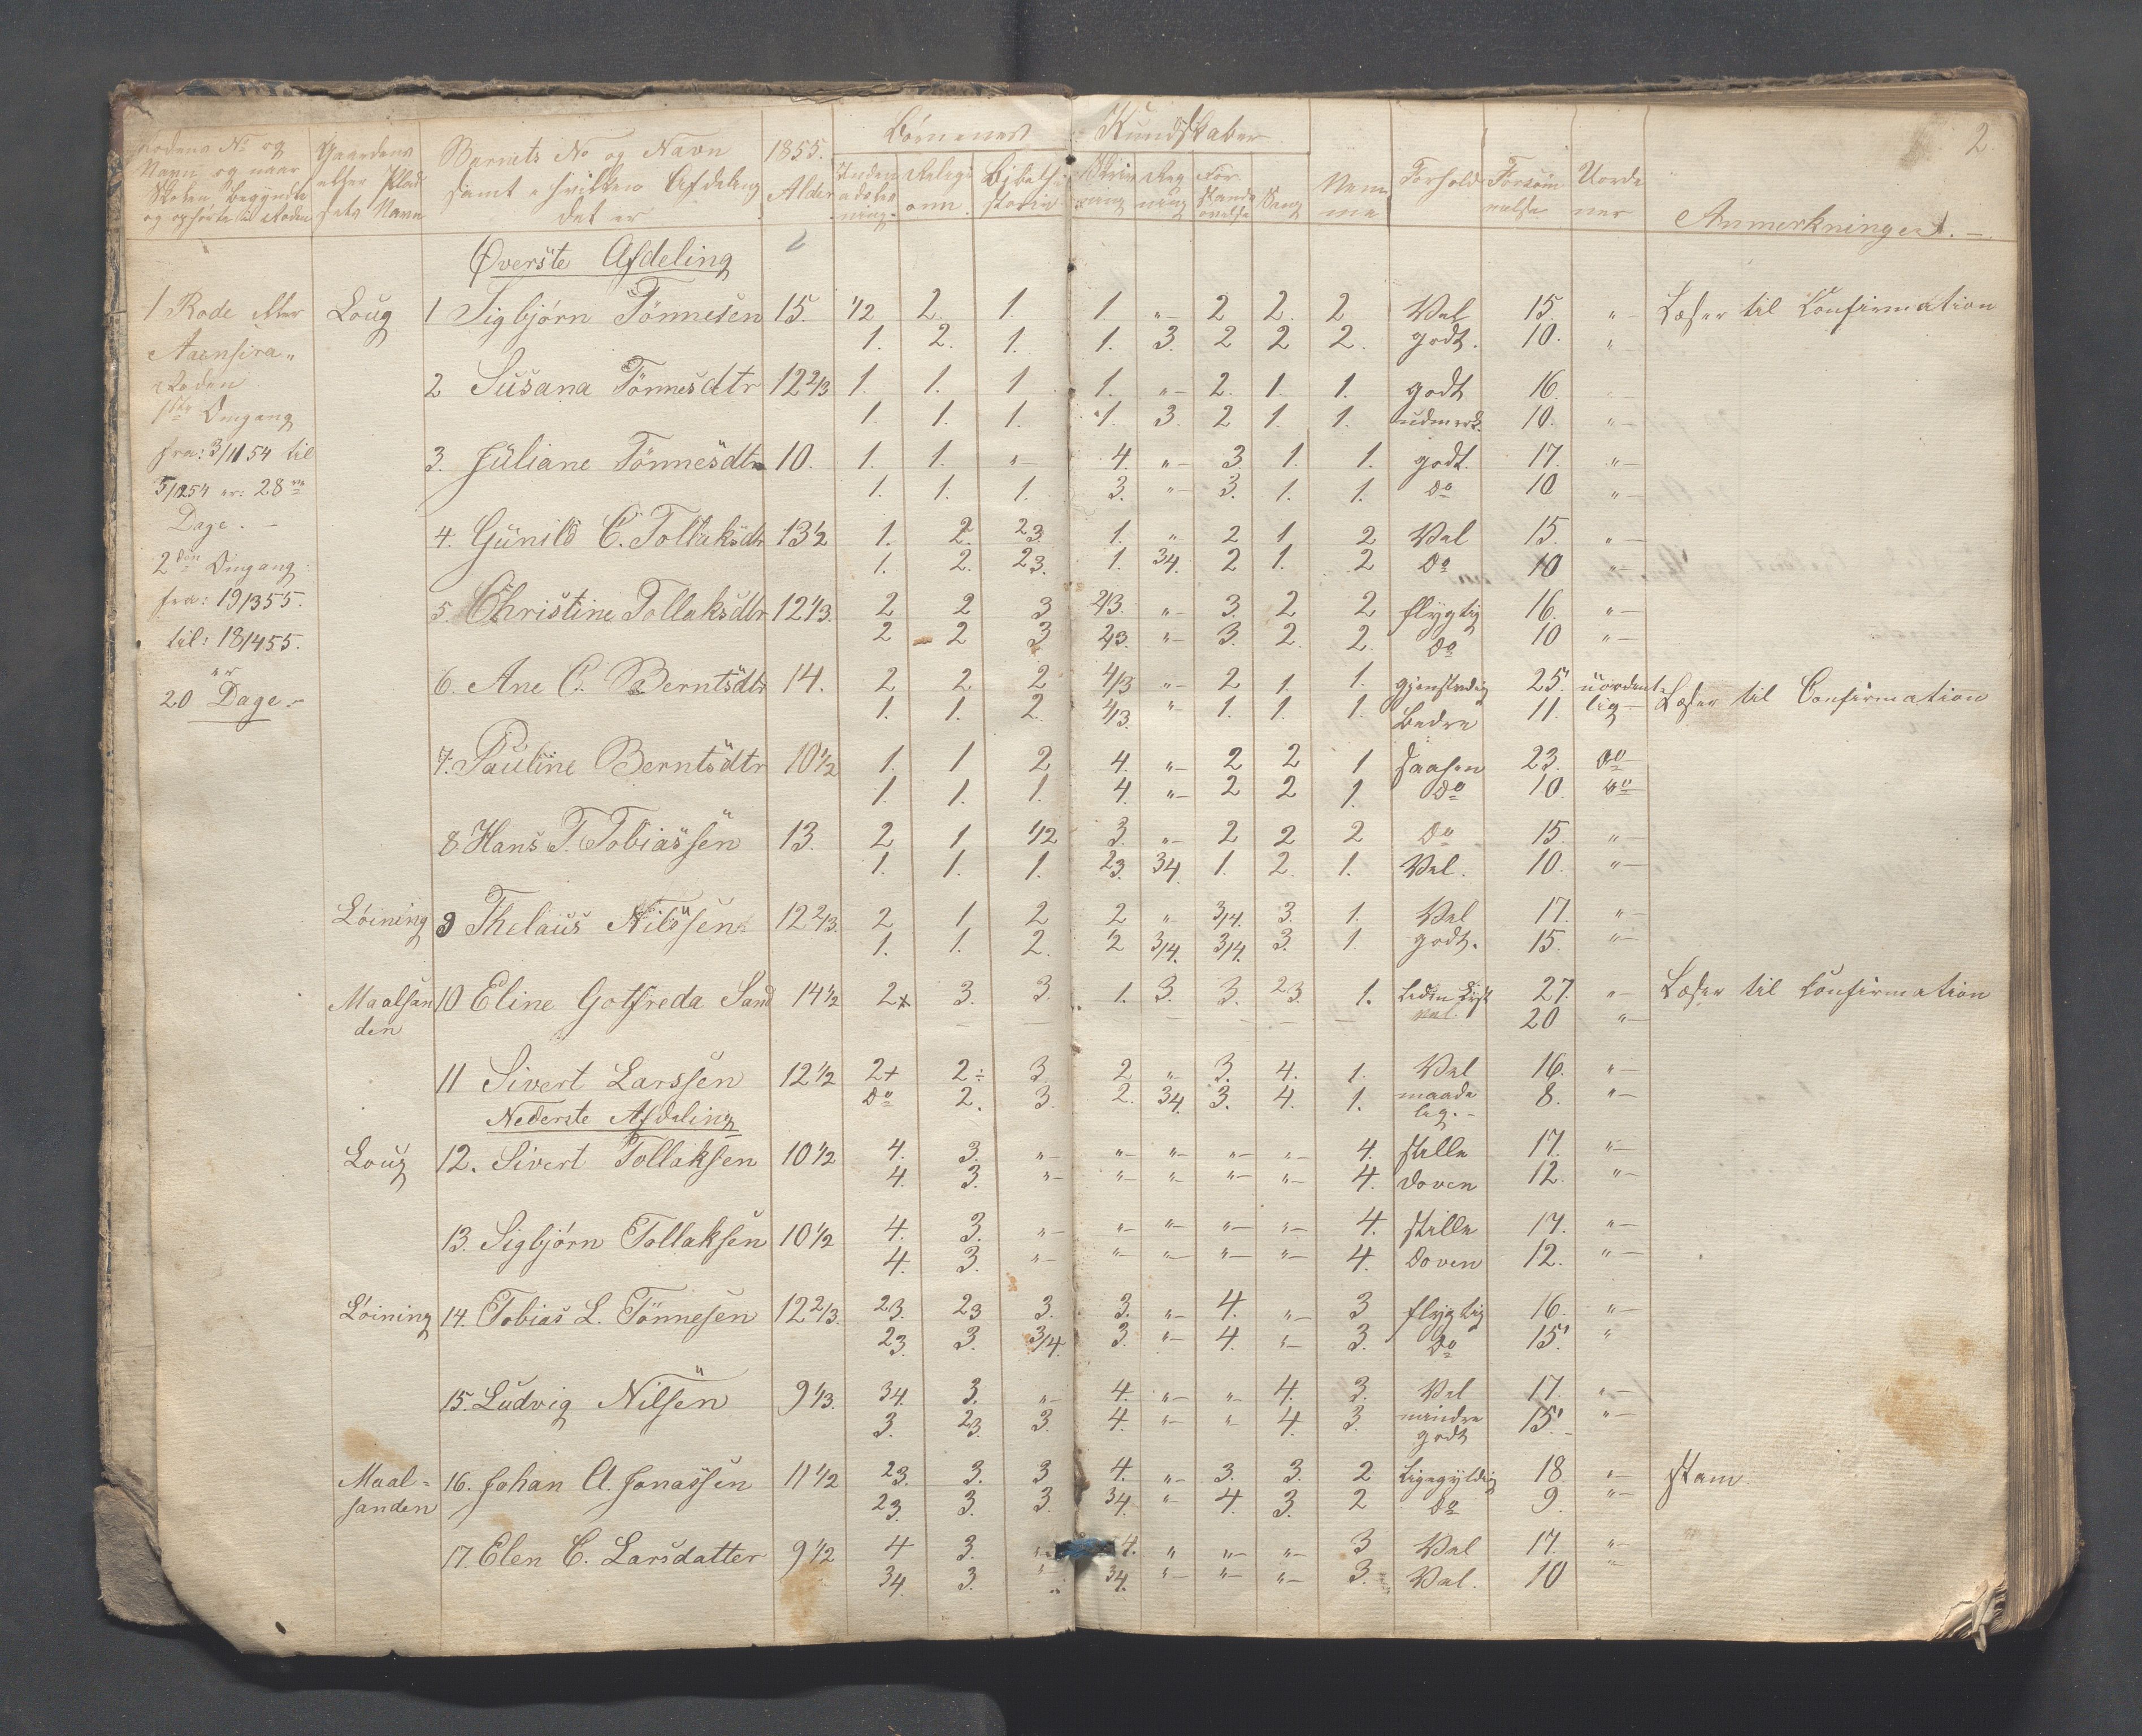 2.
Rodens No og
Navn og naar
Skolen begyndte
og ophørte i Roden
Gaardens
eller Plad
sets Navn
Barnets No og Navn
samt i hvilken Afdeling
det er
1855.
Alder
Børnenes Kundskaber
Religi
onn
Bibelhi
storie
Skriv
ning
Reg
ning
For
stands
øvelse
Sang
Nem
me
Forhold
Forsøm
melse
Uorde
ner
Anmerkninger. —
Øverste Afdeling
1 Rode eller Loug 1 Sigbjørn Tönnesen 15. 1/2 2. 1. 1 „— 2 2. 2 Vel 15. „— Læser til Confirmation
Aaensira„ 1. 2. 1. 1. 3. 2 2 2. godt. 10. „
Roden 2 Susana Tönnesdtr 12 2/3 1. 1. 1 1. „— 2. 1. 1. godt 16.
1ste Omgang 1. 1. 1. 1. 3. 2 1. 1. udmerk. 10. „—
fra: 3/11 54 til 3. Juliane Tönnesdtr 10. 1. 1. „— 4. „— 3. 1. 1. godt. 17. „—
5/12 54 er: 28ve 1. 1. 1. 3. „— 3. 1. 1. do 10 „—
Dage. — 4. Gunild C. Tollaksdtr 13 1/2 1. 2. 23. 1. „ 2 1 2 Vel 15. „—
2den Omgang 1. 2. 23. 1. 34. 2 1. 2 do 10 „—
fra: 19/3 55. 5. Christine Tollaksdtr 12 1/3. 2 2 3 2/3. „— 3. 2 2 flygtig 16. „—
til: 18/4 55. 2 2 3 23. „— 3. 2. 2. do 10 „—
er 6. Ane C. Berntsdtr 14. 2 2 2 4/3 „— 2 1 1. gjenstridig 25. uordent-
20 Dage.— 1. 1. 2. 4/3. „ 1. 1. 1. Bedre 11. lig— Læser til Confirmation
7. Pauline Berntsdtr 10 1/2 1. 1 2 4. „— 2 2 1 saasen 23. do—
1. 1. 1. 4. „— 2 2 1. do 10. do
8 Hans T. Tobiassen 13. 2 1 1/2 3. „— 2 2 2 do 15. „—
1. 1. 1. 23. 34. 1. 2. 1. Vel. 10. „—
Löining 9 Thelaus Nilssen 12 2/3. 2 1 2 2 „ 3/4. 3. 1. Vel 17. „—
1. 1. 2. 2 3/4. 3/4. 3. 1. godt. 15. „—
Maalsan 10 Eline Gotfreda Sand 14 1/2 2+ 3. 3. 1. 3. 3. 23. 1. 27. „— Læser til Confirmation
den — — — — — — — 20 „—
11 Sivert Larssen 12 1/2 2+ 2÷ 3 2 „— 3. 4. 1. Vel 16. „—
do 2. 3. 2. 34. 3. 4. 1. maade
lig.— 8. „—
Nederste Afdeling
Loug 12. Sivert Tollaksen 10 1/2 4. 3. „— „— „— „— „— 4. stille 17. „—
4. 3. „— „— „— „— „— 4. doven 12. „—
13. Sigbjørn Tollaksen 10 1/2 4. 3. „— „— „— „— „— 4. stille 17. „—
4. 3. „— „— „— „— „— 4. doven 12. „—
Löining 14. Tobias L. Tönnesen 12 2/3. 23. 23 3. 3. „— 4. „— 3 flygtig 16. „—
23. 3. 3/4. 3. „— 4. „— 3. do 15. „
15. Ludvig Nilsen 9 1/3. 34. 3. „— 4. „— „— 4. 3. Vel 17. „—
3. 23. 3. 4. „— „ 4. 3. mindre
godt 15. „—
Maal= 16. Johan A. Jonassen 11 1/2 23. 3. 3 4. „— 3. 3. 2 Ligegyldig 18. „— stam
sanden 23. 3. 3. 34. „— 4. 3. 2 do 9. „—
17. Elen C. Larsdatter 9 1/2 4 3. „ 4. „ „— „— 3 Vel 17. „—
34. 3. „ 34. „— „— „— 3. Vel. 10